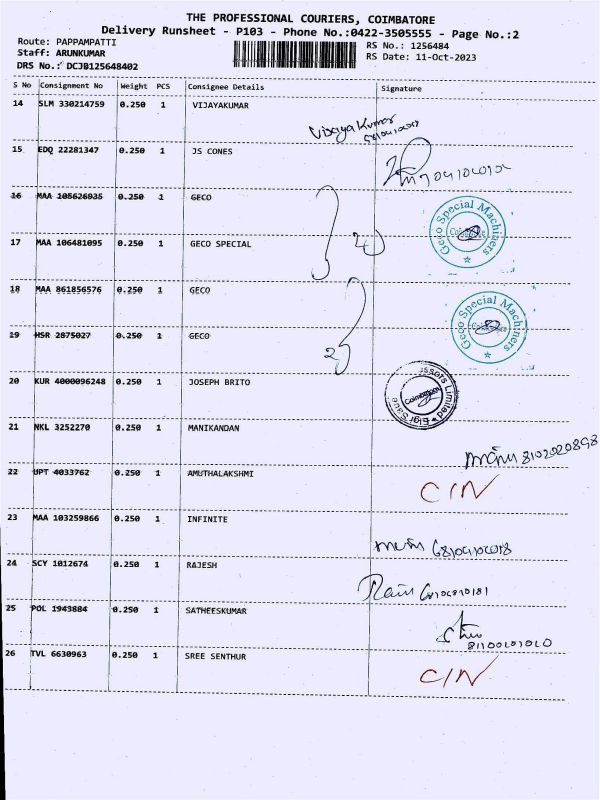 THE PROFESSIONAL COURIERS, COIMBATORE
Delivery Runsheet - P103 - Phone No.:0422-3505555 - Page No.:2
Route: PAPPAMPATTI
RS No.: 1256484
Staff: ARUNKUMAR
RS Date: 11-Oct-2023
DRS No.: DCJB125648402
S No Consignment No Weight PCS Consignee Details Signature
14 SLM 330214759 0.250 1 VIJAYAKUMAR
Vijaya Kumar
15 EDQ 22281347 0.250 1 JS CONES
16 MAA 105626935 0.250 1 GECO
Geco Special Machiners
17 MAA 106481095 0.250 1 GECO SPECIAL
18 MAA 861856576 0.250 1 GECO
Geco Special Machiners
19 HSR 2875027 0.250 1 GECO
20 KUR 4000096248 0.250 1 JOSEPH BRITO
Coimbatore
21 NKL 3252270 0.250 1 MANIKANDAN
22 UPT 4033762 0.250 1 AMUTHALAKSHMI
C/N
23 MAA 103259866 0.250 1 INFINITE
24 SCY 1012674 0.250 1 RAJESH
25 POL 1943884 0.250 1 SATHEESKUMAR
26 TVL 6630963 0.250 1 SREE SENTHUR
C/N